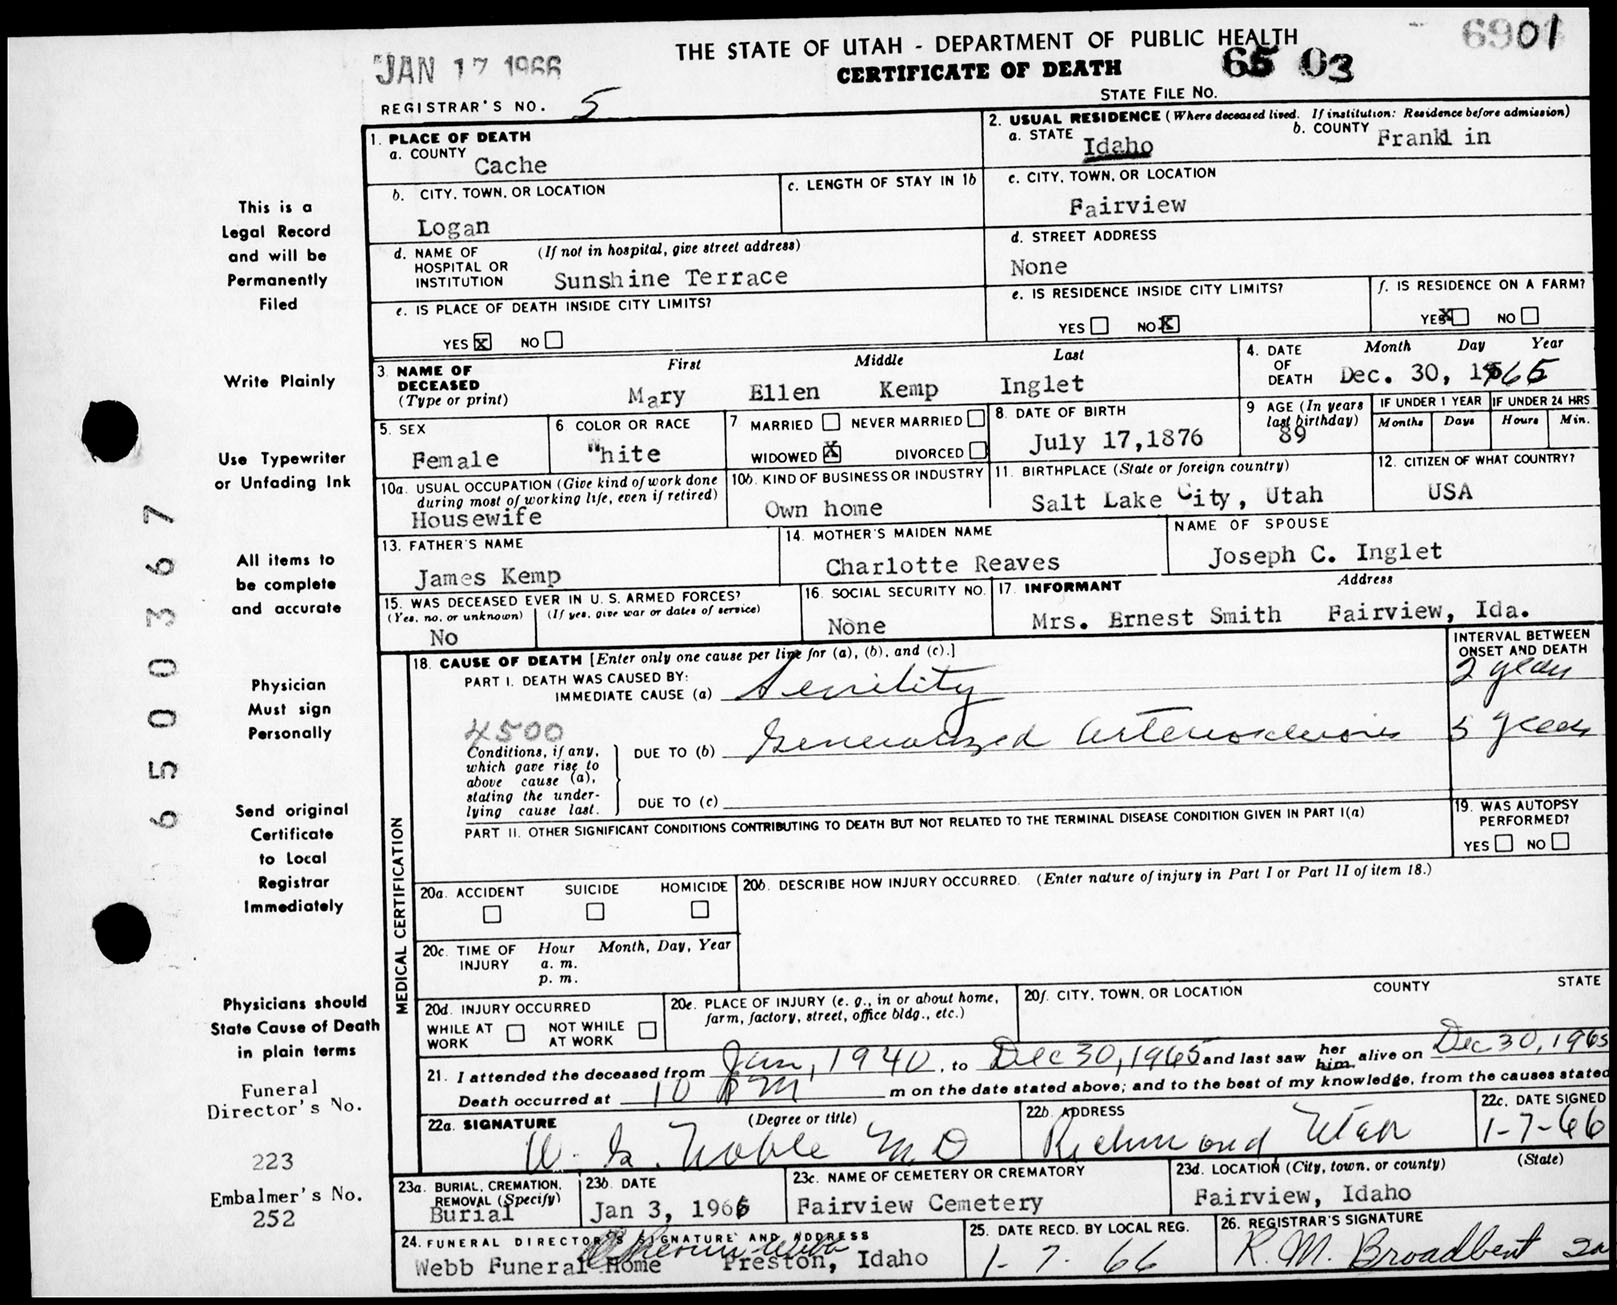 JAN 17 1966
THE STATE OF UTAH - DEPARTMENT OF PUBLIC HEALTH
CERTIFICATE OF DEATH
6901
65 03
STATE FILE NO.
REGISTRAR'S NO. 5
1. PLACE OF DEATH
a. COUNTY
Cache
2. USUAL RESIDENCE (Where deceased lived. If institution: Residence before admission)
a. STATE Idaho
b. COUNTY Frankl in
b. CITY, TOWN, OR LOCATION
Logan
c. LENGTH OF STAY IN 1b
c. CITY, TOWN, OR LOCATION
Fairview
d. NAME OF HOSPITAL OR INSTITUTION
(If not in hospital, give street address)
Sunshine Terrace
d. STREET ADDRESS
None
e. IS PLACE OF DEATH INSIDE CITY LIMITS?
YES X NO
e. IS RESIDENCE INSIDE CITY LIMITS?
YES NO X
f. IS RESIDENCE ON A FARM?
YES X NO
3. NAME OF DECEASED
(Type or print)
First Middle Last
Mary Ellen Kemp Inglet
4. DATE OF DEATH
Month Day Year
Dec. 30, 1965
5. SEX
Female
6 COLOR OR RACE
White
7 MARRIED NEVER MARRIED
WIDOWED X DIVORCED
8. DATE OF BIRTH
July 17,1876
9 AGE (In years last birthday)
89
IF UNDER 1 YEAR
Months Days
IF UNDER 24 HRS
Hours Min.
10a. USUAL OCCUPATION (Give kind of work done
during most of working life, even if retired)
Housewife
10b. KIND OF BUSINESS OR INDUSTRY
Own home
11. BIRTHPLACE (State or foreign country)
Salt Lake City, Utah
12. CITIZEN OF WHAT COUNTRY?
USA
13. FATHER'S NAME
James Kemp
14. MOTHER'S MAIDEN NAME
Charlotte Reaves
NAME OF SPOUSE
Joseph C. Inglet
15. WAS DECEASED EVER IN U. S. ARMED FORCES?
(Yes, no, or unknown) (If yes, give war or dates of service)
No
16. SOCIAL SECURITY NO.
None
17. INFORMANT Address
Mrs. Ernest Smith Fairview, Ida.
18. CAUSE OF DEATH [Enter only one cause per line for (a), (b), and (c).]
INTERVAL BETWEEN ONSET AND DEATH
PART I. DEATH WAS CAUSED BY:
IMMEDIATE CAUSE (a) Senility 2 years
4500
Conditions, if any,
which gave rise to
above cause (a),
stating the under-
lying cause last.
DUE TO (b) Generalized Arteriosclerosis 5 years
DUE TO (c)
PART II. OTHER SIGNIFICANT CONDITIONS CONTRIBUTING TO DEATH BUT NOT RELATED TO THE TERMINAL DISEASE CONDITION GIVEN IN PART I(a)
19. WAS AUTOPSY PERFORMED?
YES NO
MEDICAL CERTIFICATION
20a. ACCIDENT SUICIDE HOMICIDE
20b. DESCRIBE HOW INJURY OCCURRED. (Enter nature of injury in Part I or Part II of item 18.)
20c. TIME OF INJURY
Hour Month, Day, Year
a. m.
p. m.
20d. INJURY OCCURRED
WHILE AT WORK NOT WHILE AT WORK
20e. PLACE OF INJURY (e. g., in or about home,
farm, factory, street, office bldg., etc.)
20f. CITY, TOWN, OR LOCATION COUNTY STATE
21. I attended the deceased from Jan, 1940, to Dec 30, 1965 and last saw her him alive on Dec 30, 1965
Death occurred at 10 PM m on the date stated above; and to the best of my knowledge, from the causes stated
22a. SIGNATURE (Degree or title)
W. G. Noble M D
22b. ADDRESS
Richmond Utah
22c. DATE SIGNED
1-7-66
23a. BURIAL, CREMATION, REMOVAL (Specify)
Burial
23b. DATE
Jan 3, 1966
23c. NAME OF CEMETERY OR CREMATORY
Fairview Cemetery
23d. LOCATION (City, town, or county) (State)
Fairview, Idaho
24. FUNERAL DIRECTOR'S SIGNATURE AND ADDRESS
Webb Funeral Home Preston, Idaho
25. DATE RECD. BY LOCAL REG.
1-7-66
26. REGISTRAR'S SIGNATURE
R. M. Broadbent
This is a
Legal Record
and will be
Permanently
Filed
Write Plainly
Use Typewriter
or Unfading Ink
All items to
be complete
and accurate
Physician
Must sign
Personally
Send original
Certificate
to Local
Registrar
Immediately
Physicians should
State Cause of Death
in plain terms
Funeral
Director's No.
223
Embalmer's No.
252
65 00367